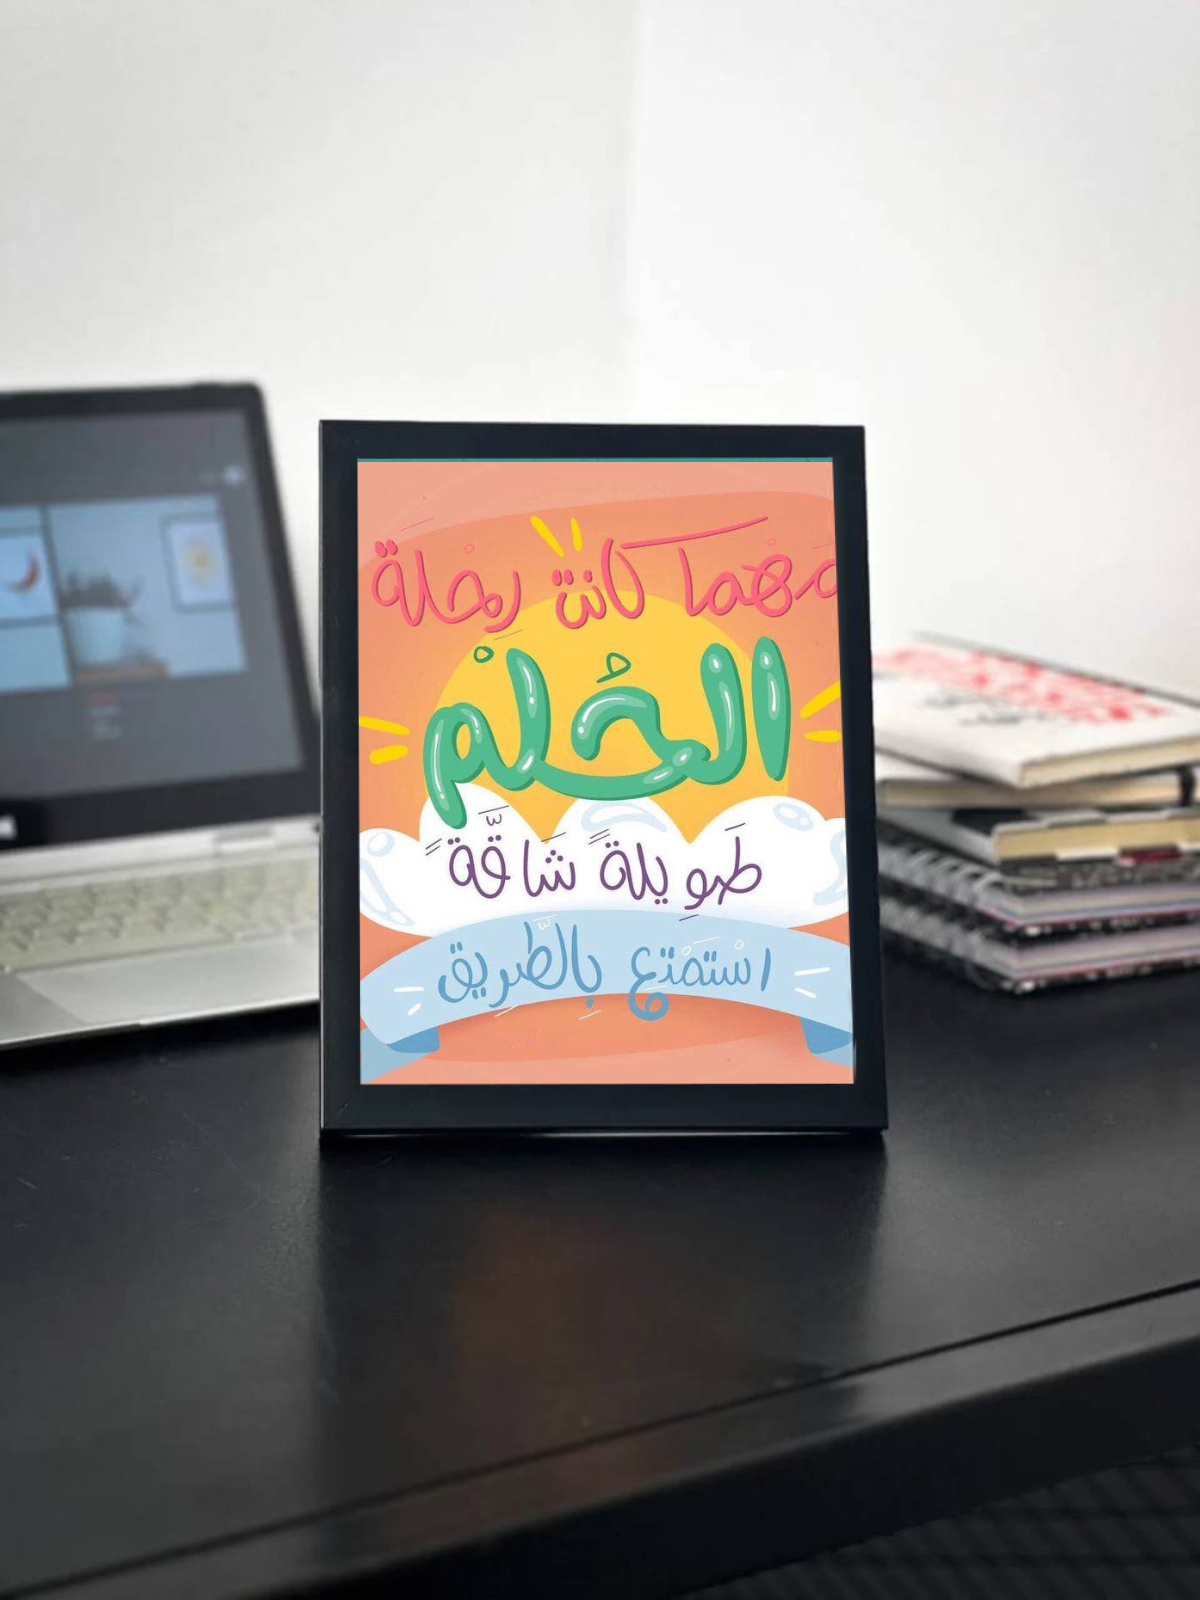 مَهما كانت رحْلة
الحُلْم
طَويلةً شاقَّةً
اسْتمْتِع بِالطَّريق